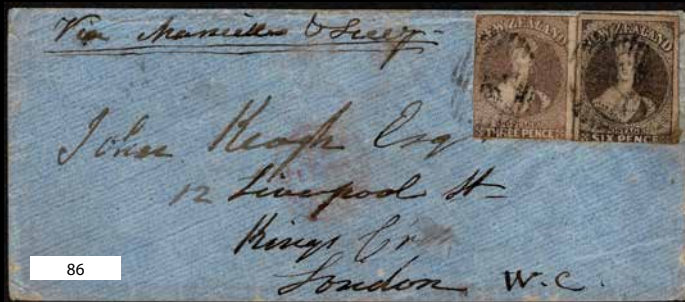 Via Marseilles & Suez
NEW ZEALAND
THREE PENCE
NEW ZEALAND
POSTAGE
SIX PENCE
John Keogh Esq
12 Liverpool St
Kings Cr
London W.C.
86